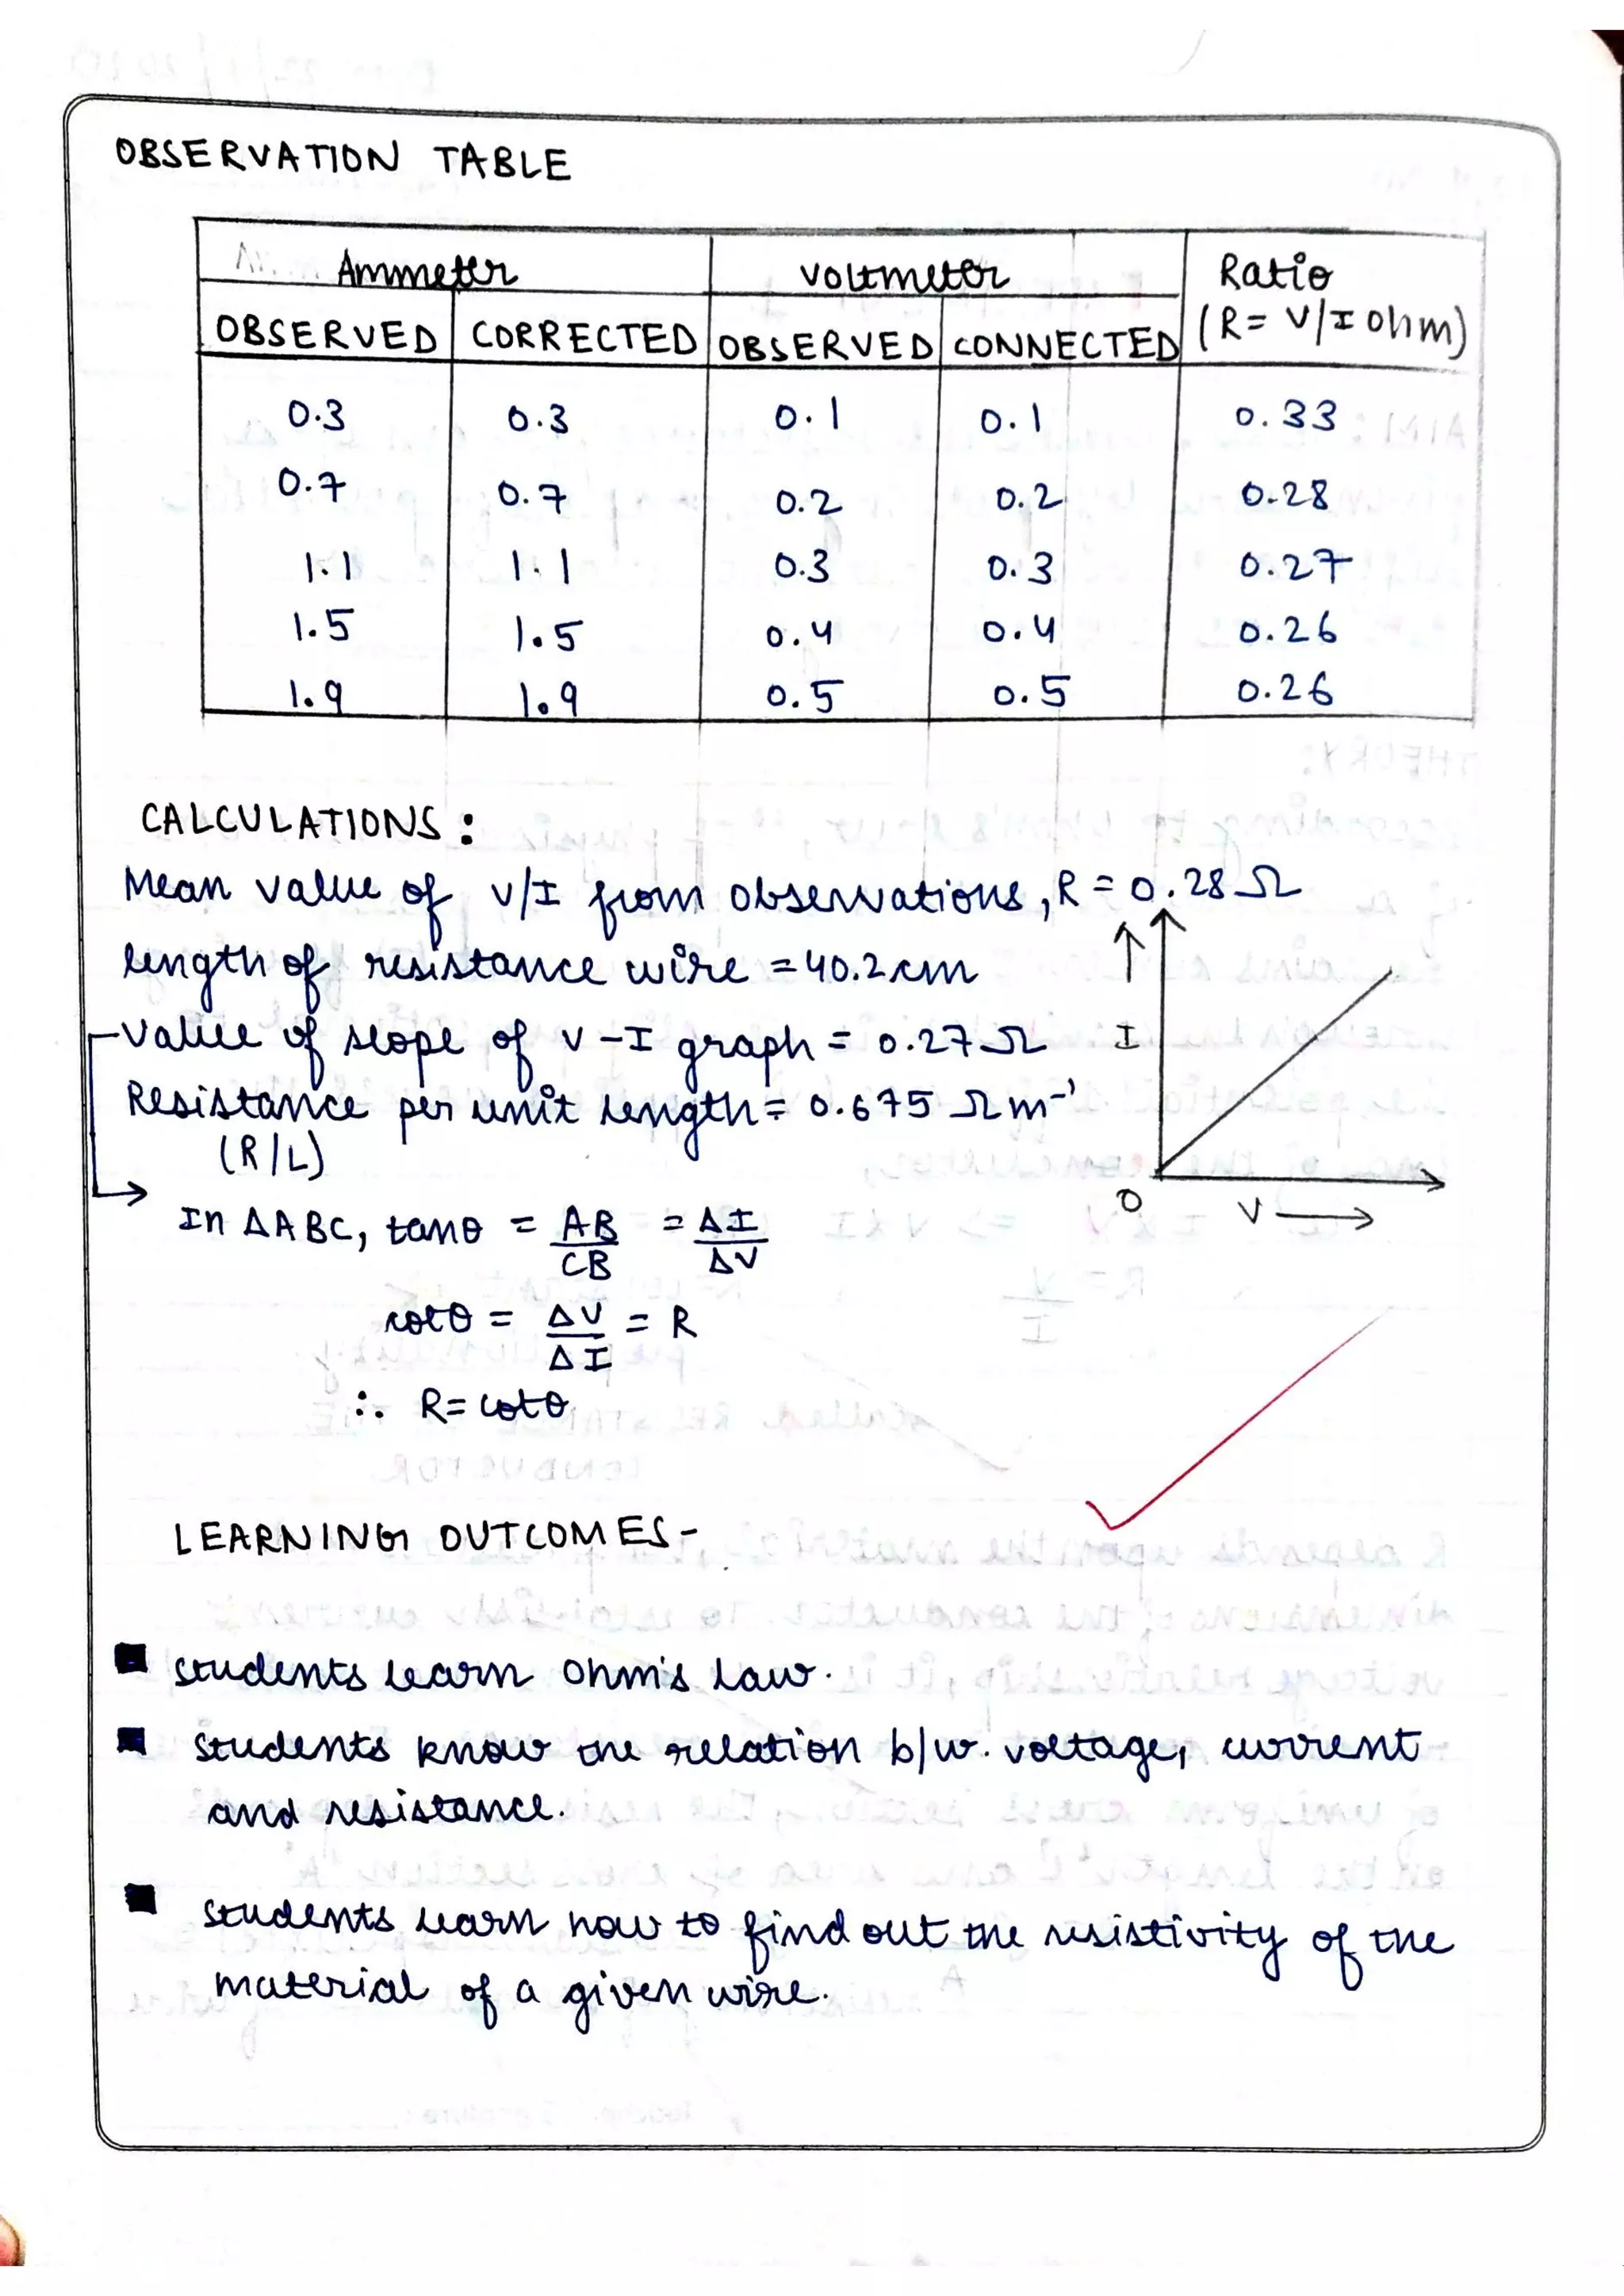 OBSERVATION TABLE
Ammeter voltmeter Ratio
OBSERVED CORRECTED OBSERVED CONNECTED (R= V/I ohm)
0.3 0.3 0.1 0.1 0.33
0.7 0.7 0.2 0.2 0.28
1.1 1.1 0.3 0.3 0.27
1.5 1.5 0.4 0.4 0.26
1.9 1.9 0.5 0.5 0.26
CALCULATIONS :
Mean value of V/I from observations, R = 0.28 Ω
length of resistance wire = 40.2 cm
value of slope of V-I graph = 0.27 Ω
Resistance per unit length = 0.675 Ω m⁻¹
(R/L)
I
O V
In ΔABC, tanθ = AB/CB = ΔI/ΔV
cotθ = ΔV/ΔI = R
∴ R= cotθ
LEARNING OUTCOMES-
students learn ohm's law.
students know the relation b/w. voltage, current
and resistance.
students learn how to find out the resistivity of the
material of a given wire.